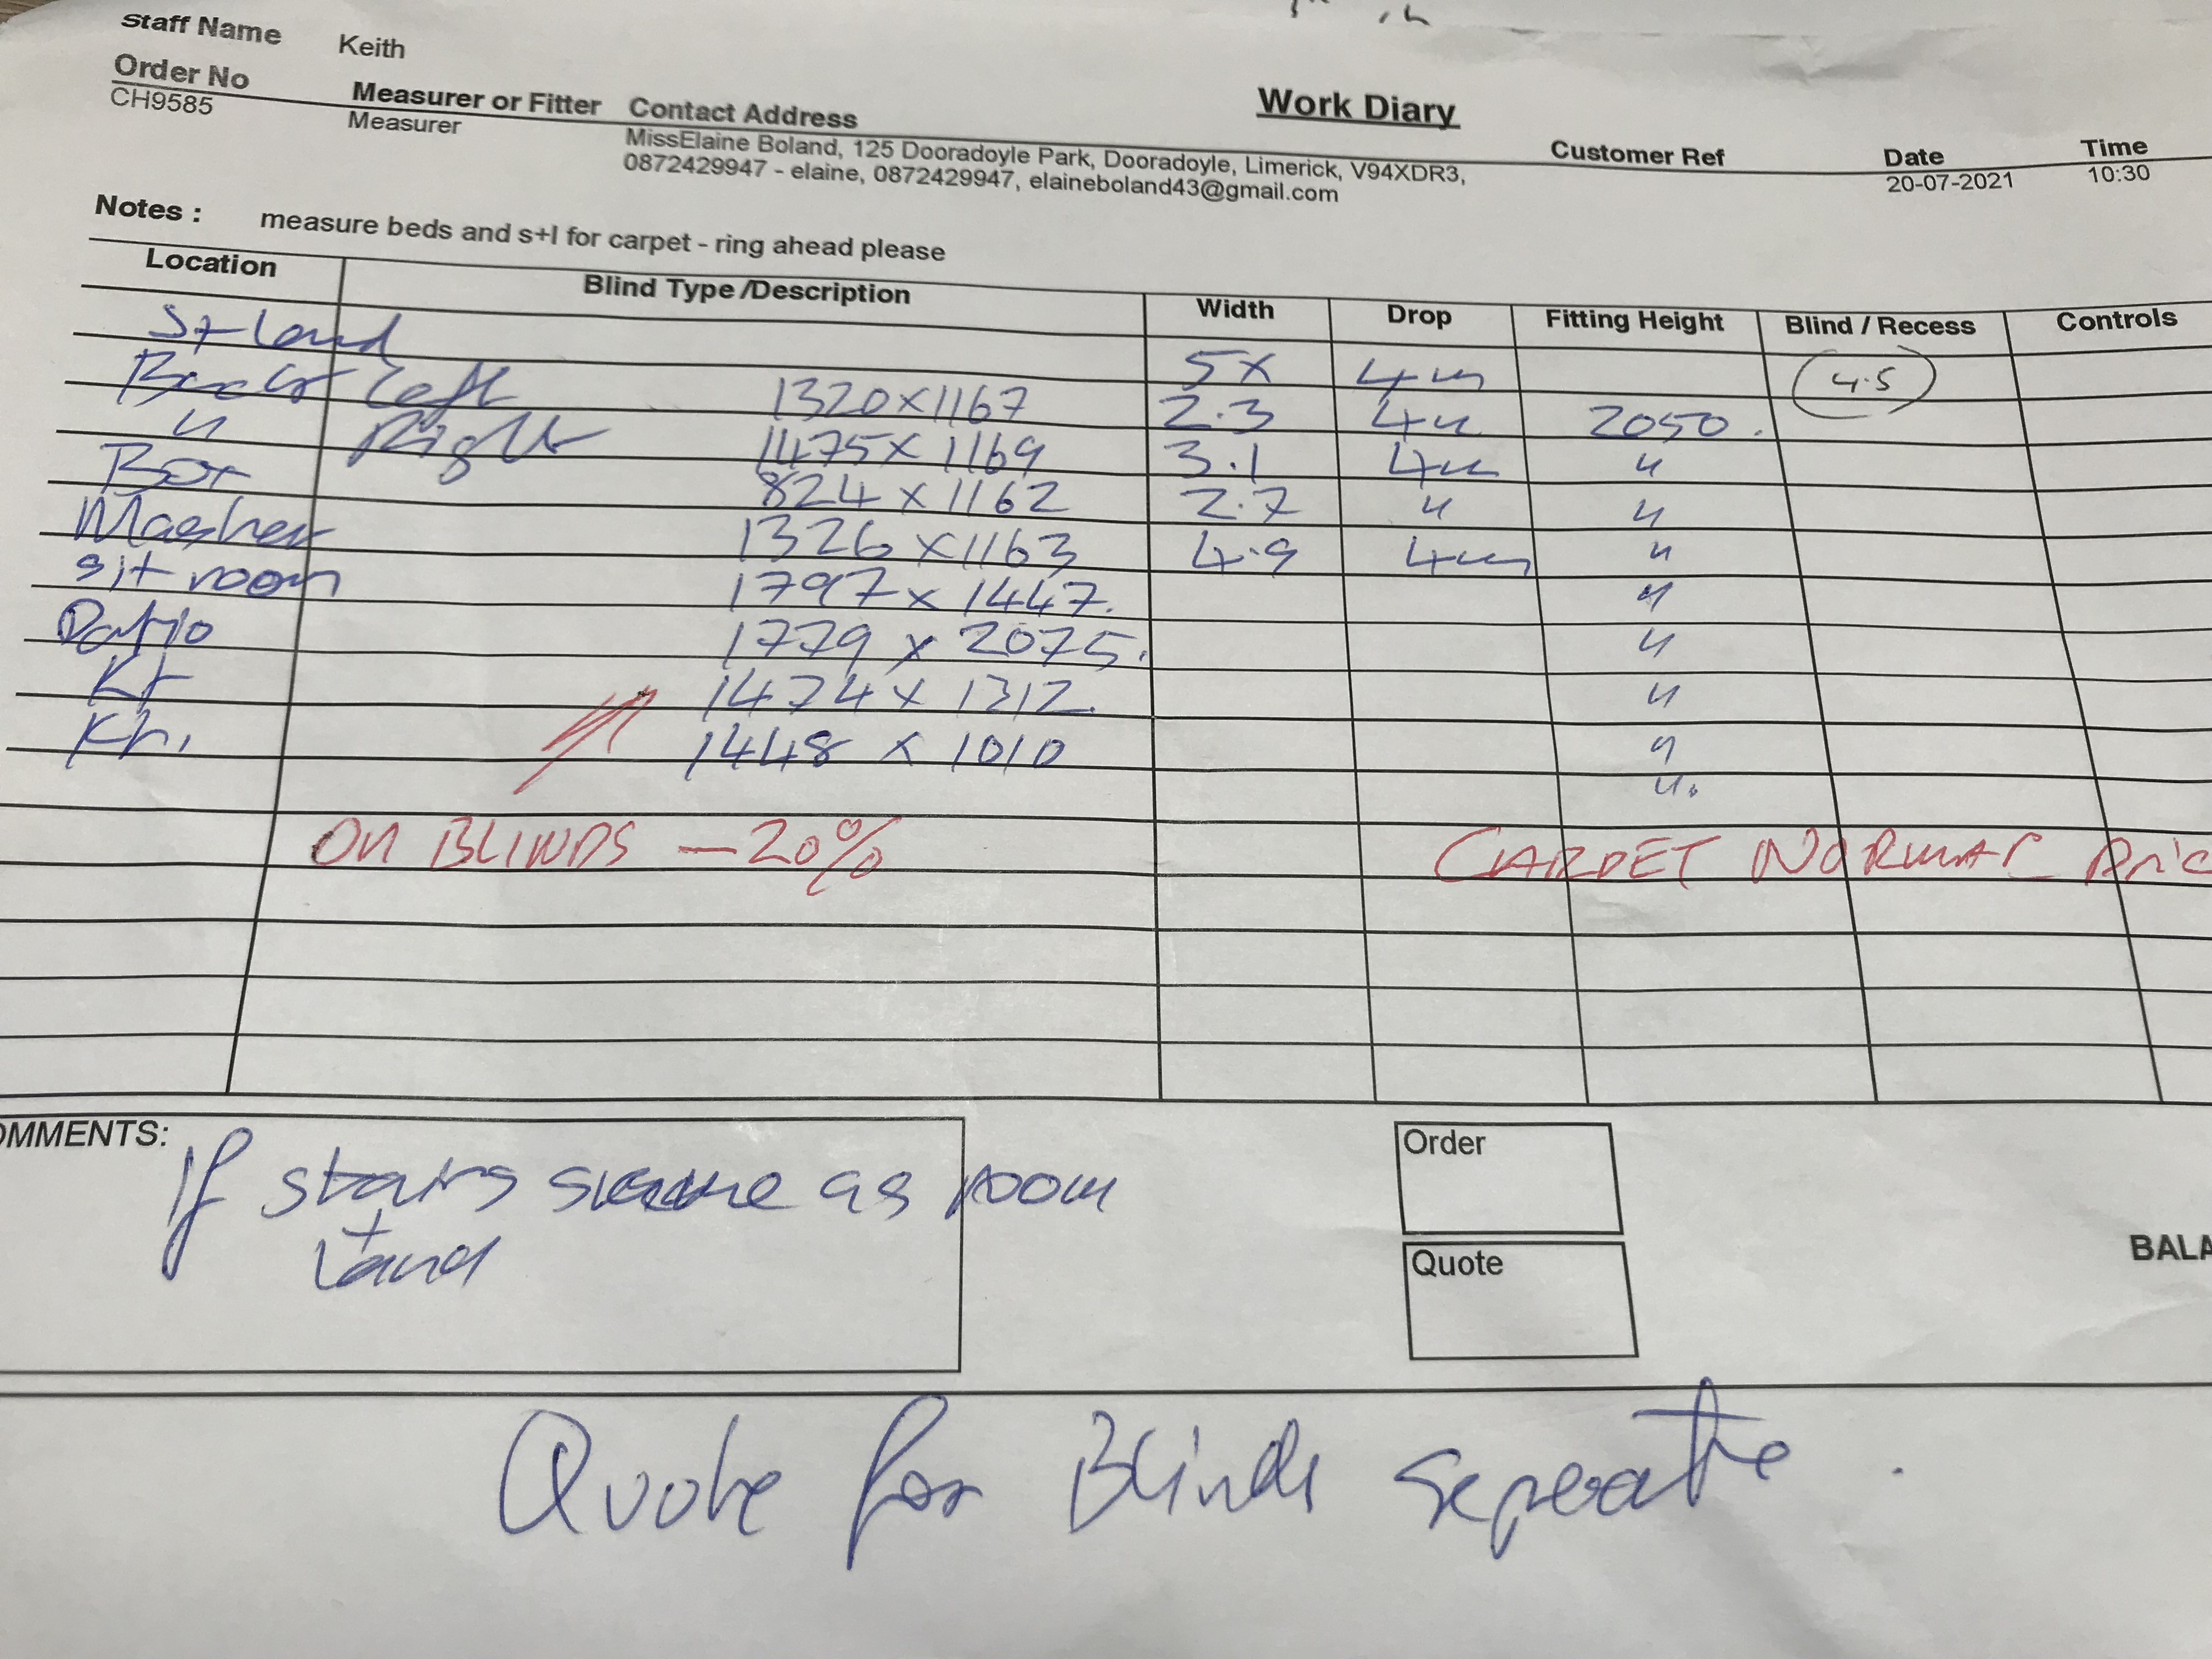 Staff Name Keith
Order No Measurer or Fitter Contact Address Work Diary Customer Ref Date Time
CH9585 Measurer MissElaine Boland, 125 Dooradoyle Park, Dooradoyle, Limerick, V94XDR3, 20-07-2021 10:30
0872429947 - elaine, 0872429947, elaineboland43@gmail.com
Notes : measure beds and s+l for carpet - ring ahead please
Location Blind Type /Description Width Drop Fitting Height Blind / Recess Controls
St Land 5x 4m 4.5
Back Left 1320x1167 2.3 4m 2050.
" Right 1475x1169 3.1 4m "
Box 824x1162 2.7 " "
Master 1326x1163 4.9 4m "
sit room 1797x1447. "
Patio 1779x2075. "
Kt 1474x1312. "
Kt. 1448x1010 "
".
ON BLINDS -20% CARPET NORMAL Pric
OMMENTS:
If stairs same as room
+
Land
Order
Quote
BALA
Quote for Blinds seperate.